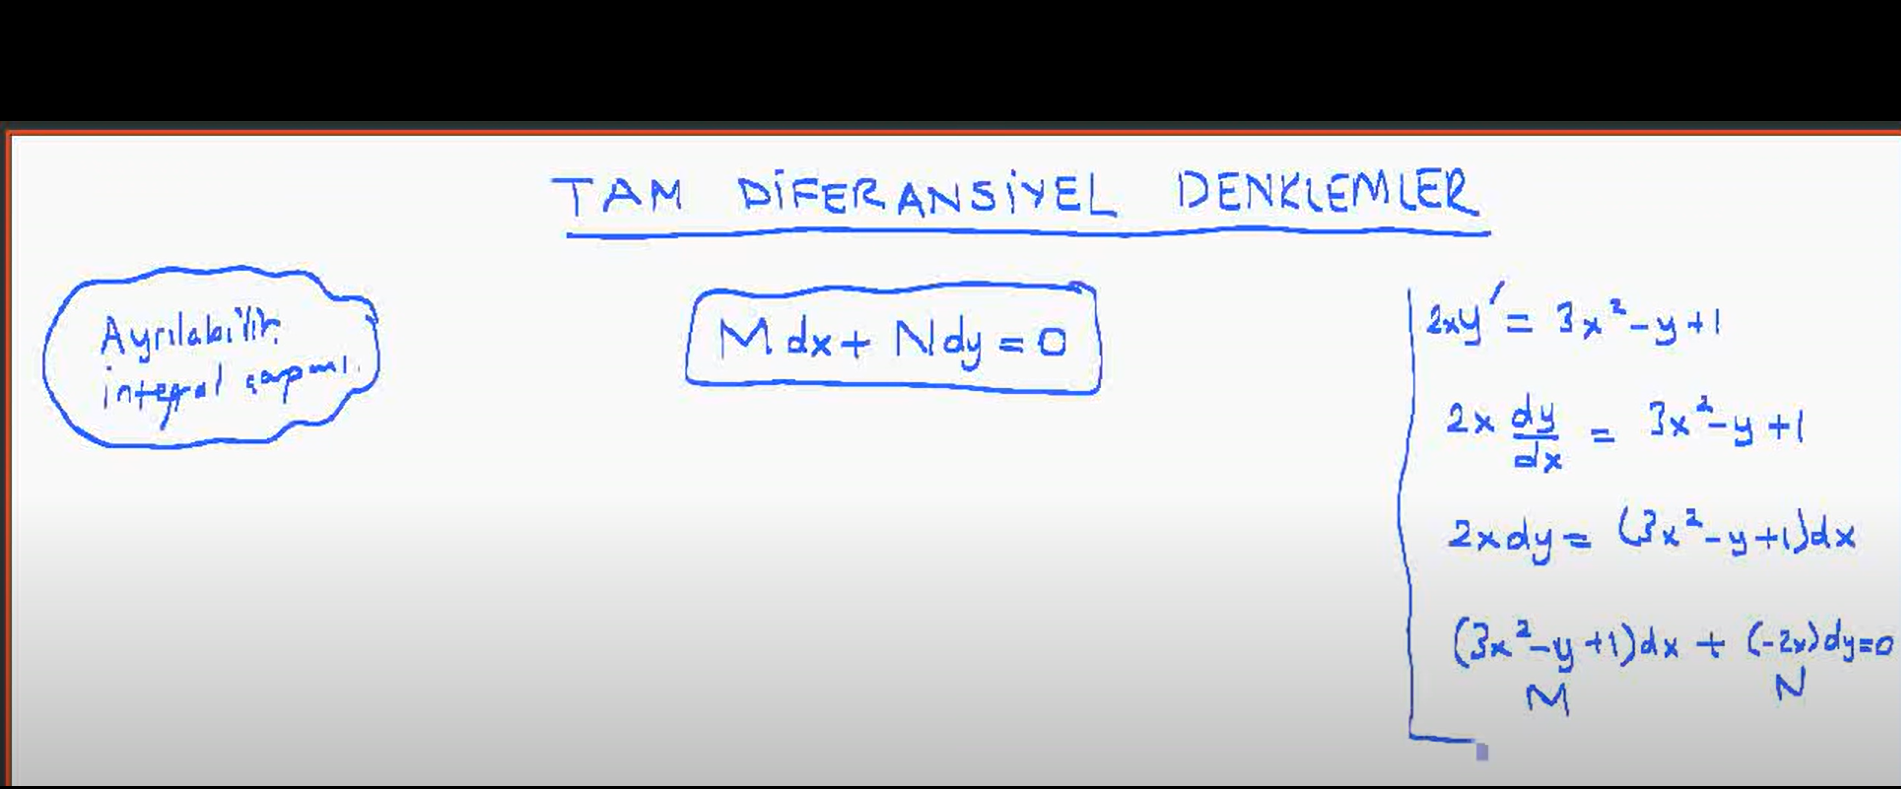 TAM DİFERANSİYEL DENKLEMLER
Ayrılabilir.
integral çarpanı.
M dx + N dy = 0
2xy' = 3x² - y + 1
2x dy/dx = 3x² - y + 1
2x dy = (3x² - y + 1)dx
(3x² - y + 1)dx + (-2x)dy = 0
M N